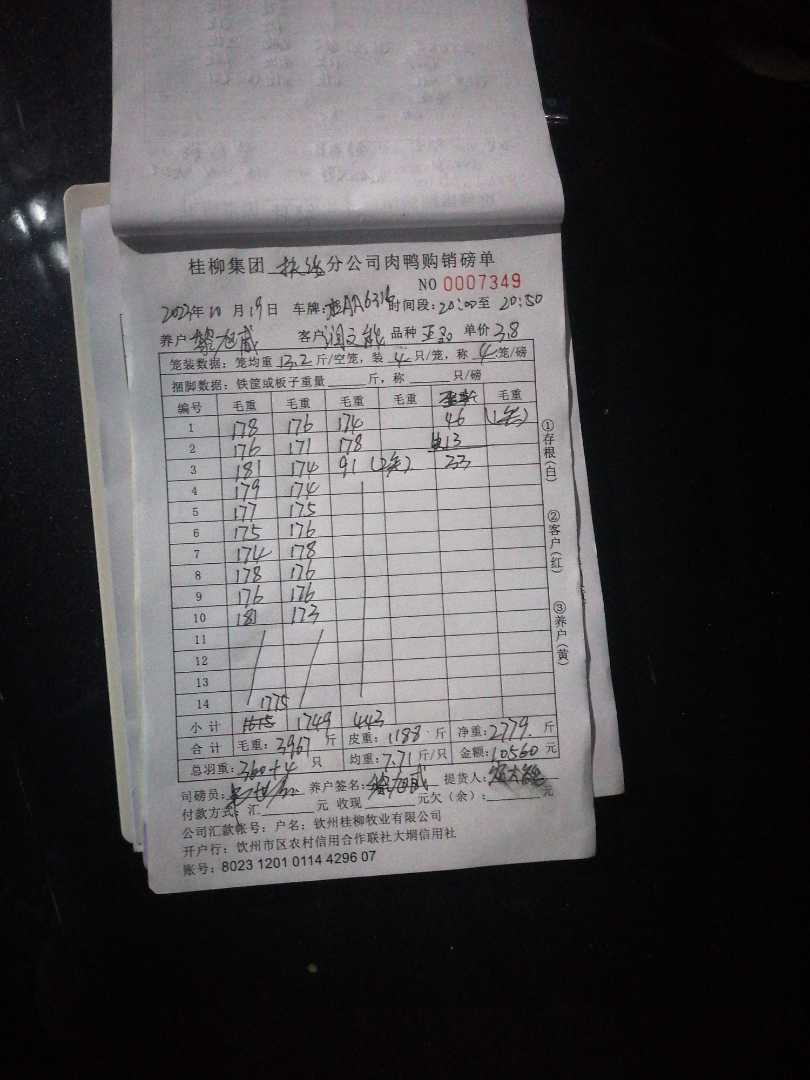 桂柳集团 分公司肉鸭购销磅单
NO 0007349
2023年10月19日 车牌: 时间段:20:00至20:50
养户: 旭威 客户: 品种 单价3.8
笼装数据: 笼均重 13.2 斤/空笼, 装 4 只/笼, 称 4 笼/磅
捆脚数据: 铁筐或板子重量 斤, 称 只/磅
编号 毛重 毛重 毛重 毛重 毛重
1 178 176 174 46 (1笼)
2 176 171 178 13
3 181 174 91 (2笼) 33
4 179 174
5 177 175
6 175 176
7 174 178
8 178 176
9 176 176
10 181 173
11
12
13
14 1775
小计 1749 443
合计 毛重:3967 斤 皮重:1188 斤 净重:2779 斤
总羽重:360+4 只 均重:7.71 斤/只 金额:10560 元
司磅员: 养户签名: 旭威 提货人:
付款方式: 汇 元 收现 元欠(余): 元
公司汇款帐号: 户名: 钦州桂柳牧业有限公司
开户行: 钦州市区农村信用合作联社大垌信用社
账号: 8023 1201 0114 4296 07
①存根(白)
②客户(红)
③养户(黄)